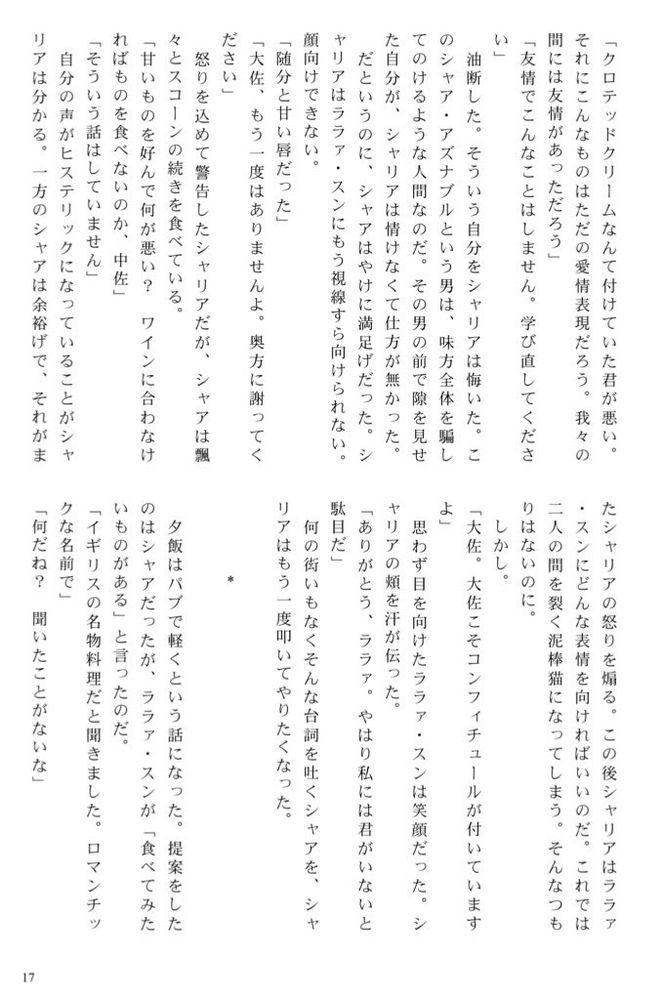 「クロテッドクリームなんて付けていた君が悪い。
それにこんなものはただの愛情表現だろう。我々の
間には友情があっただろう」
「友情でこんなことはしません。学び直してくださ
い」
　油断した。そういう自分をシャリアは悔いた。こ
のシャア・アズナブルという男は、味方全体を騙し
てのけるような人間なのだ。その男の前で隙を見せ
た自分が、シャリアは情けなくて仕方が無かった。
　だというのに、シャアはやけに満足げだった。シ
ャリアはララァ・スンにもう視線すら向けられない。
顔向けできない。
「随分と甘い唇だった」
「大佐、もう一度はありませんよ。奥方に謝ってく
ださい」
　怒りを込めて警告したシャリアだが、シャアは飄
々とスコーンの続きを食べている。
「甘いものを好んで何が悪い？　ワインに合わなけ
ればものを食べないのか、中佐」
「そういう話はしていません」
　自分の声がヒステリックになっていることがシャ
リアは分かる。一方のシャアは余裕げで、それがま
たシャリアの怒りを煽る。この後シャリアはララァ
・スンにどんな表情を向ければいいのだ。これでは
二人の間を裂く泥棒猫になってしまう。そんなつも
りはないのに。
　しかし。
「大佐。大佐こそコンフィチュールが付いています
よ」
　思わず目を向けたララァ・スンは笑顔だった。シ
ャリアの頬を汗が伝った。
「ありがとう、ララァ。やはり私には君がいないと
駄目だ」
　何の衒いもなくそんな台詞を吐くシャアを、シャ
リアはもう一度叩いてやりたくなった。
＊
　夕飯はパブで軽くという話になった。提案をした
のはシャアだったが、ララァ・スンが「食べてみた
いものがある」と言ったのだ。
「イギリスの名物料理だと聞きました。ロマンチッ
クな名前で」
「何だね？　聞いたことがないな」
17